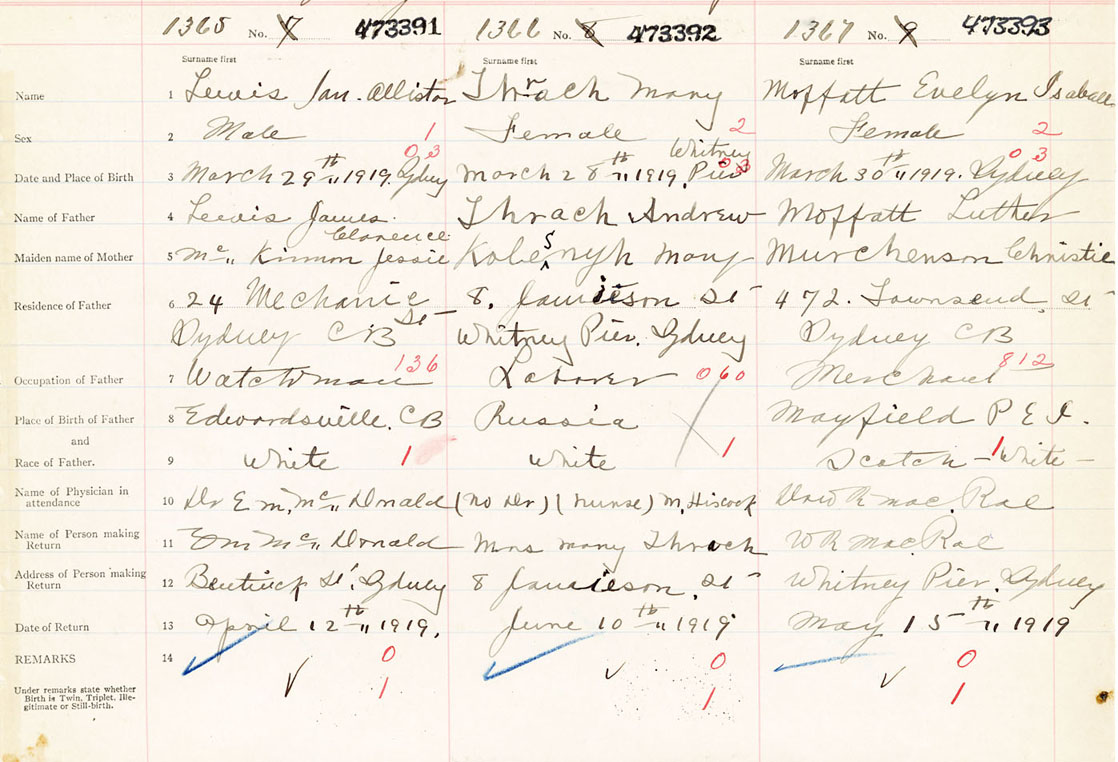 1365 No. 7 473391 1366 No. 8 473392 1367 No. 9 473393
Surname first Surname first Surname first
Name 1 Lewis Ian. Alliston Thrach Mary Moffatt Evelyn Isabell
Sex 2 Male 1 Female 2 Female 2
03 Whitney 03 03
Date and Place of Birth 3 March 29th 1919. Sydney March 28th 1919. Pier March 30th 1919. Sydney
Name of Father 4 Lewis James. Thrach Andrew Moffatt Luther
Clarence
Maiden name of Mother 5 Mc" Kinnon Jessie Kobesnyk Mary Murchenson Christie
Residence of Father 6 24 Mechanic St 8. Jamieson St 472. Townsend St
Sydney C.B Whitney Pier. Sydney Sydney CB
Occupation of Father 7 Watchman 136 Laborer 060 Merchant 812
Place of Birth of Father 8 Edwardsville. CB Russia Mayfield P E I.
and
Race of Father. 9 White 1 White 1 Scotch - 1 White -
Name of Physician in
attendance 10 Dr E M. Mc" Donald (no Dr) (nurse) M. Hiscock Mac. Rae
Name of Person making
Return 11 E M Mc" Donald Mrs Mary Thrach W R Mac. Rae
Address of Person making
Return 12 Bentinck St. Sydney 8 Jamieson. St Whitney Pier. Sydney
Date of Return 13 April 12th 1919. June 10th 1919 May 15th 1919
REMARKS 14 0 0 0
Under remarks state whether
Birth is Twin, Triplet, Ille-
gitimate or Still-birth. 1 1 1